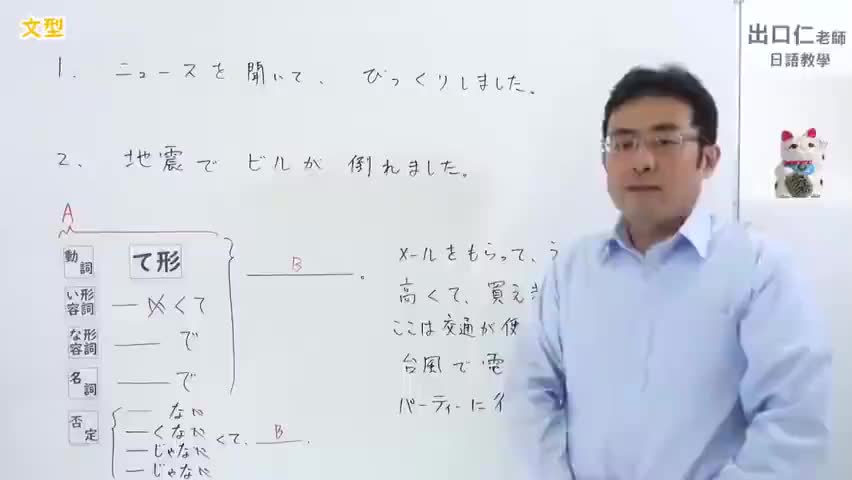 文型
出口仁老師
日語教學
1. ニュースを聞いて、びっくりしました。
2. 地震でビルが倒れました。
A
動詞 て形
B
い形容詞 ーいくて
な形容詞 ーで
名詞 ーで
否定
ーない
ーくない
ーじゃない
ーじゃない
くて、B.
メールをもらって、う
高くて、買え
ここは交通が便
台風で電
パーティーに行